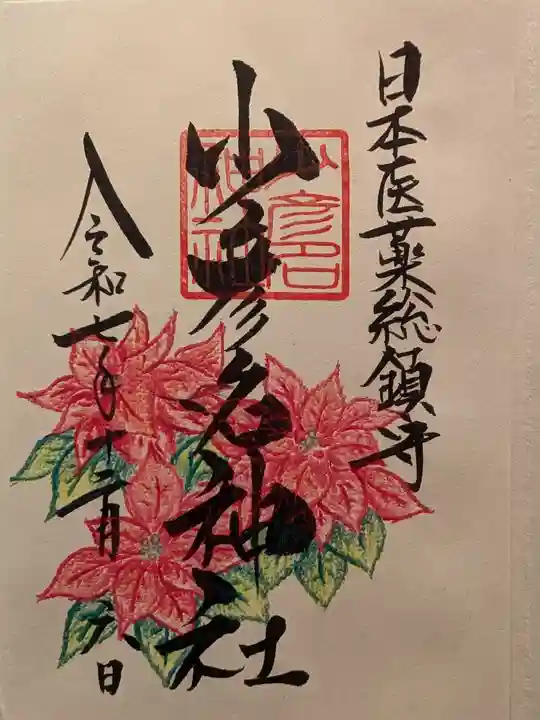 日本医薬総鎮守
少彦名神社
少彦名
神社
令和七年十二月六日